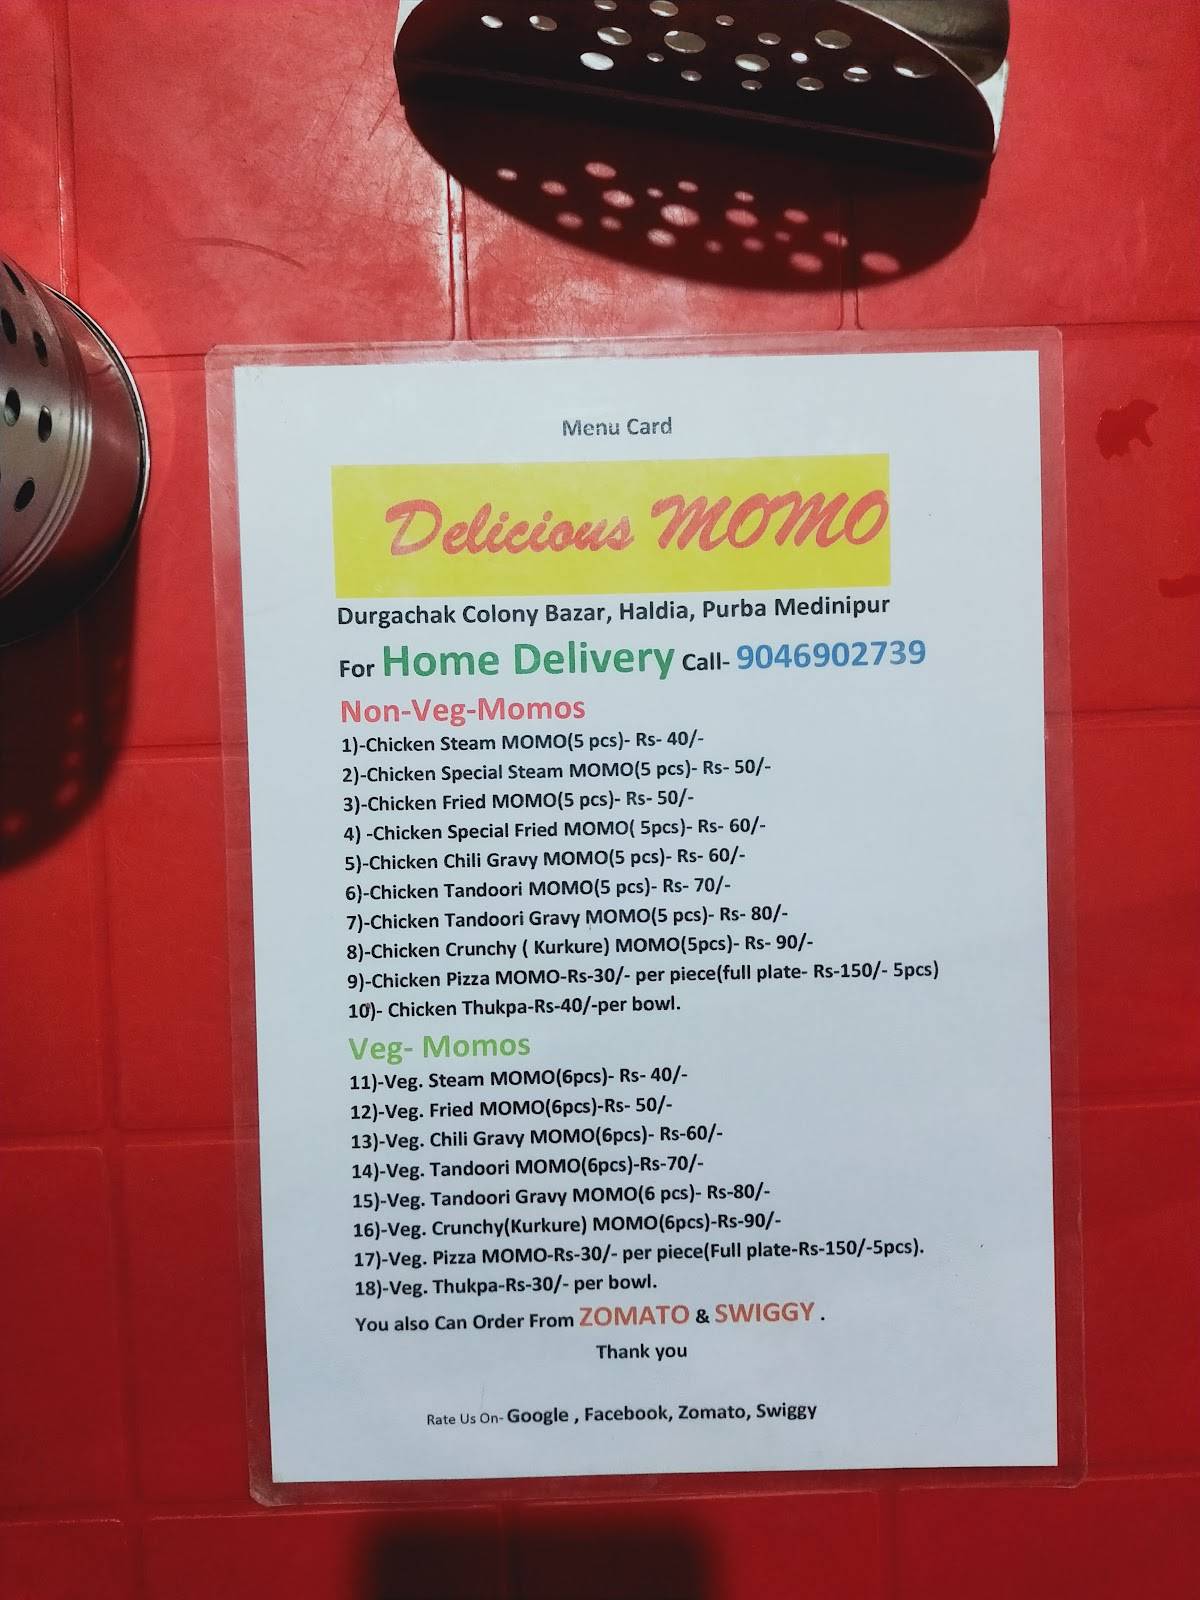 Menu Card
Delicious MOMO
Durgachak Colony Bazar, Haldia, Purba Medinipur
For Home Delivery Call- 9046902739
Non-Veg-Momos
1)-Chicken Steam MOMO(5 pcs)- Rs- 40/-
2)-Chicken Special Steam MOMO(5 pcs)- Rs- 50/-
3)-Chicken Fried MOMO(5 pcs)- Rs- 50/-
4) -Chicken Special Fried MOMO( 5pcs)- Rs- 60/-
5)-Chicken Chili Gravy MOMO(5 pcs)- Rs- 60/-
6)-Chicken Tandoori MOMO(5 pcs)- Rs- 70/-
7)-Chicken Tandoori Gravy MOMO(5 pcs)- Rs- 80/-
8)-Chicken Crunchy ( Kurkure) MOMO(5pcs)- Rs- 90/-
9)-Chicken Pizza MOMO-Rs-30/- per piece(full plate- Rs-150/- 5pcs)
10)- Chicken Thukpa-Rs-40/-per bowl.
Veg- Momos
11)-Veg. Steam MOMO(6pcs)- Rs- 40/-
12)-Veg. Fried MOMO(6pcs)-Rs- 50/-
13)-Veg. Chili Gravy MOMO(6pcs)- Rs-60/-
14)-Veg. Tandoori MOMO(6pcs)-Rs-70/-
15)-Veg. Tandoori Gravy MOMO(6 pcs)- Rs-80/-
16)-Veg. Crunchy(Kurkure) MOMO(6pcs)-Rs-90/-
17)-Veg. Pizza MOMO-Rs-30/- per piece(Full plate-Rs-150/-5pcs).
18)-Veg. Thukpa-Rs-30/- per bowl.
You also Can Order From ZOMATO & SWIGGY .
Thank you
Rate Us On- Google , Facebook, Zomato, Swiggy